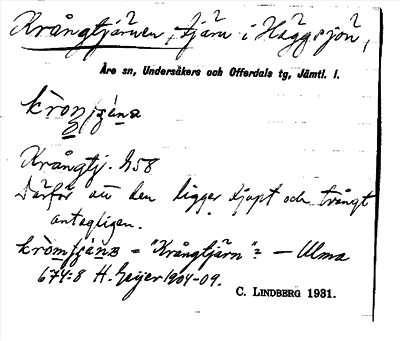 Krångtjärnen, tjärn i Häggsjön,
Åre sn, Undersåkers och Offerdals tg, Jämtl. l.
Krångtj. h58
Därför att den ligger djupt och trångt
antagligen.
= "Krångtjärn"? — Ulma
674:8 H. Geijer 1904-09.
C. LINDBERG 1931.